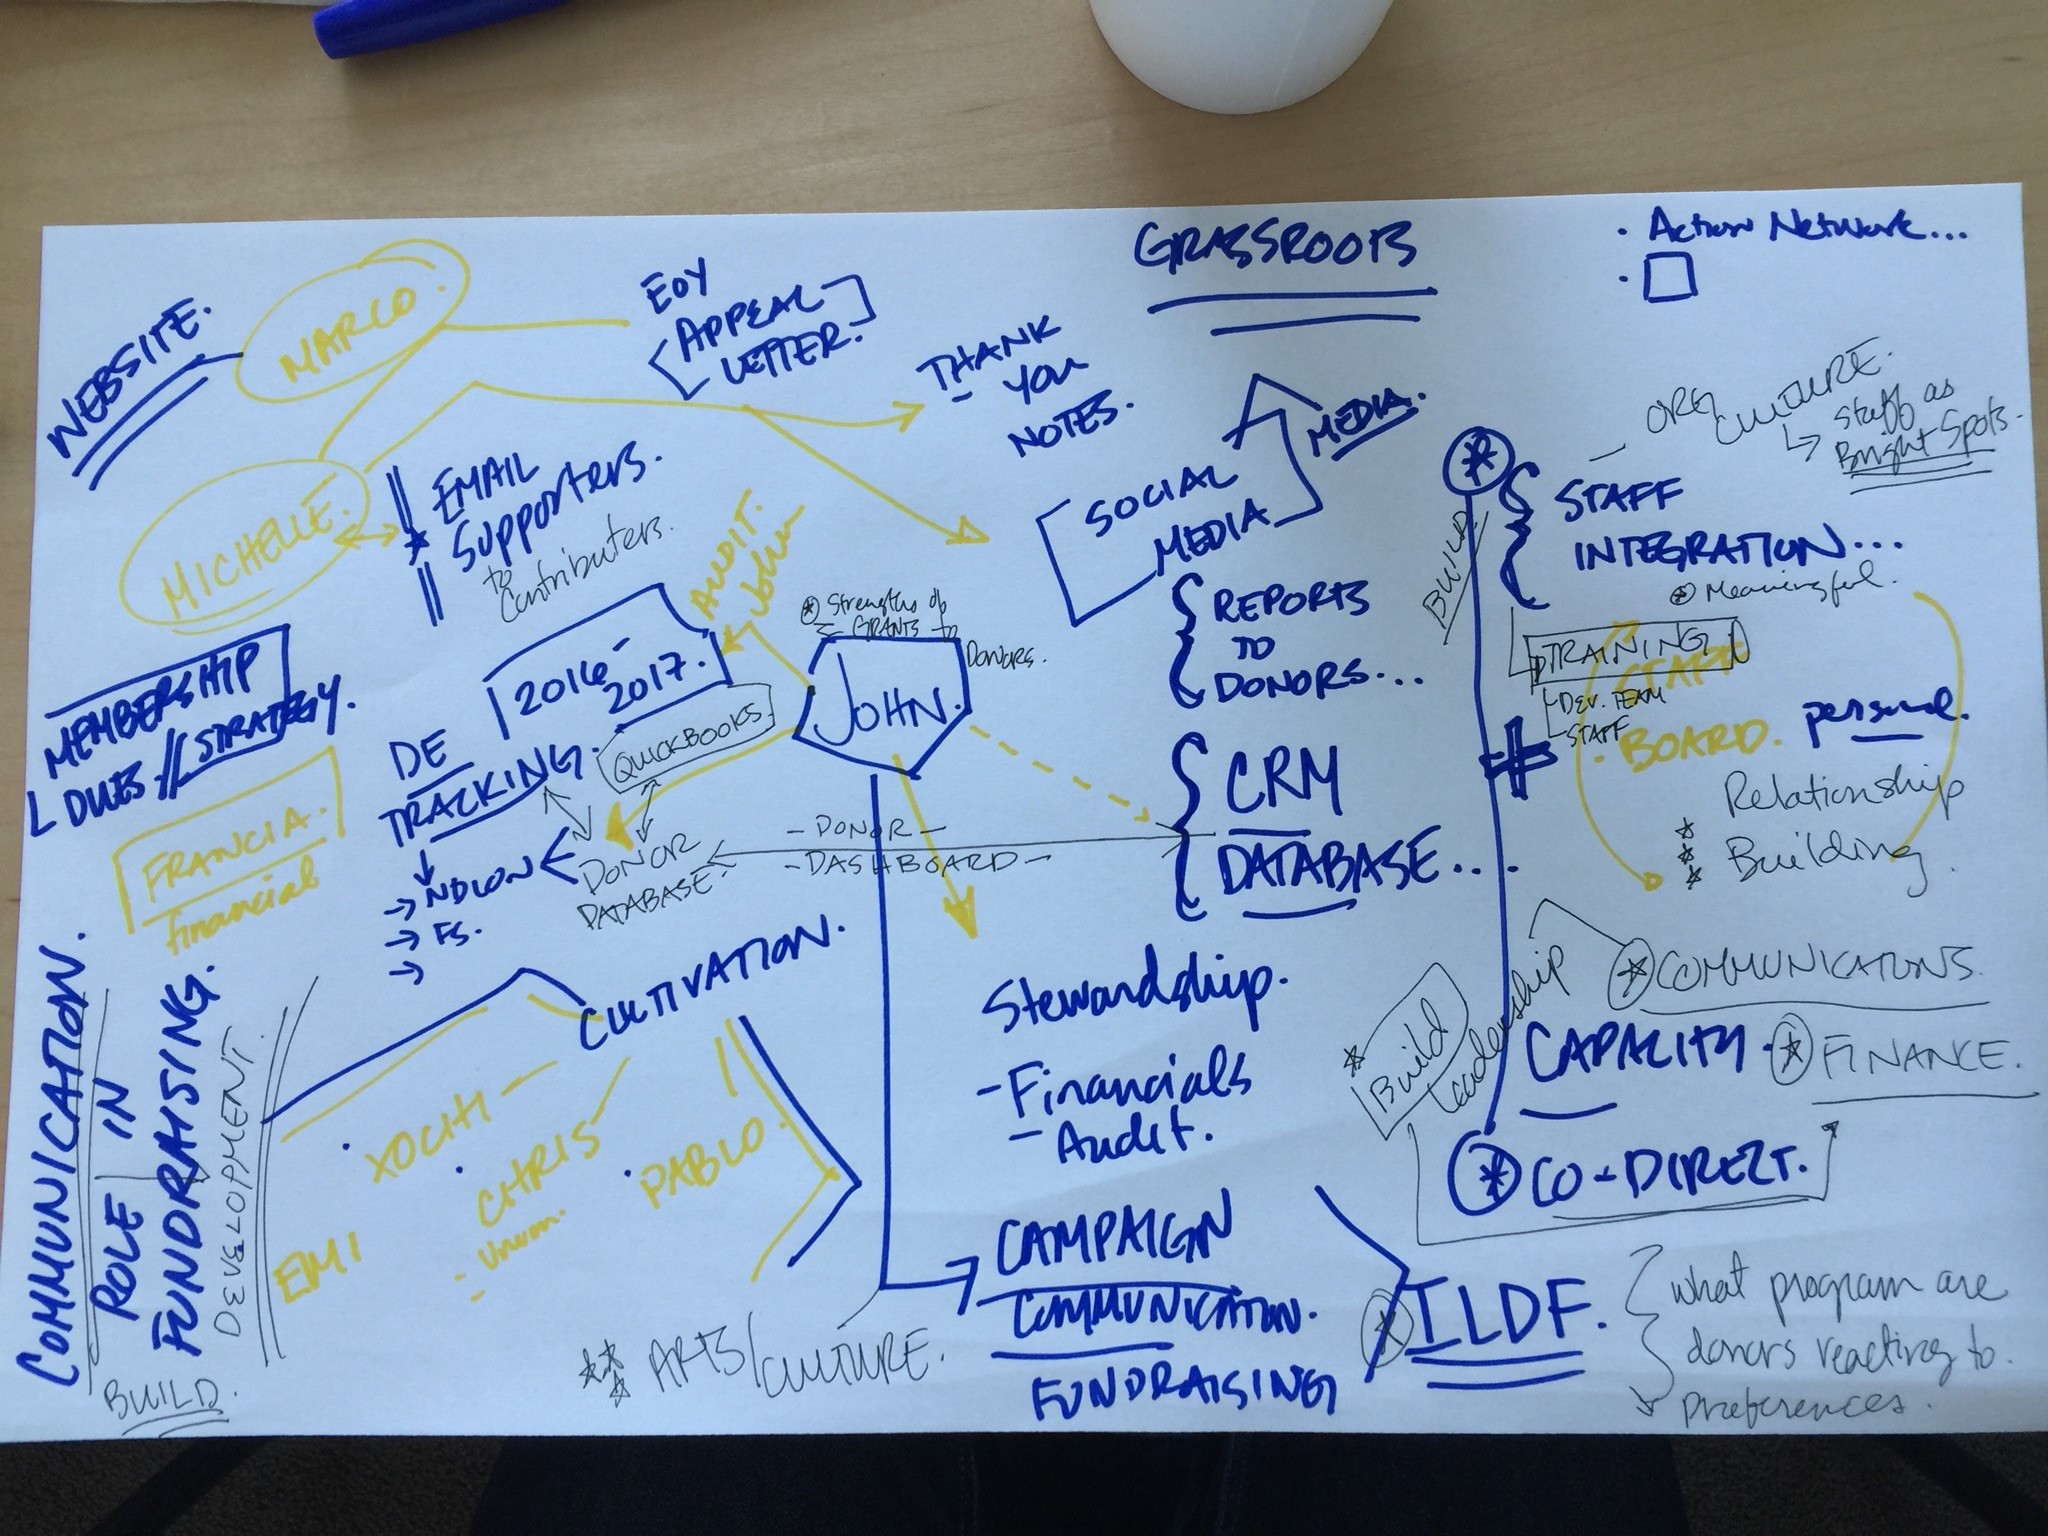 WEBSITE.
MARCO.
EOY
APPEAL
LETTER.
THANK
YOU
NOTES.
GRASSROOTS
· Action Network...
MICHELLE.
EMAIL
Supporters.
to
Contributers.
SOCIAL
MEDIA
MEDIA.
- ORG
CULTURE.
Staff as
Bright Spots.
STAFF
INTEGRATION...
Meaningful.
BUILD.
TRAINING
DEV. TEAM
STAFF
STAFF
· BOARD.
personal.
Relationship
Building.
MEMBERSHIP
DUES // STRATEGY.
FRANCIA.
financial
2016-
2017.
AUDIT.
John
Strengths of
GRANTS to
Donors.
JOHN.
QUICKBOOKS
DE
TRACKING.
→ NDION
→ FS.
→
DONOR
DATABASE.
- DONOR -
- DASHBOARD -
REPORTS
TO
DONORS...
CRM
DATABASE....
COMMUNICATION.
ROLE IN
FUNDRAISING.
DEVELOPMENT.
BUILD.
CULTIVATION.
EMI
· XOCHI
· CHRIS
· PABLO.
Stewardship.
- Financials
- Audit.
CAMPAIGN
COMMUNICATION.
FUNDRAISING
ARTS/CULTURE.
Build
Leadership
COMMUNICATIONS.
CAPACITY.
FINANCE.
CO-DIRECT.
ILDF.
what program are
donors reacting to.
preferences.